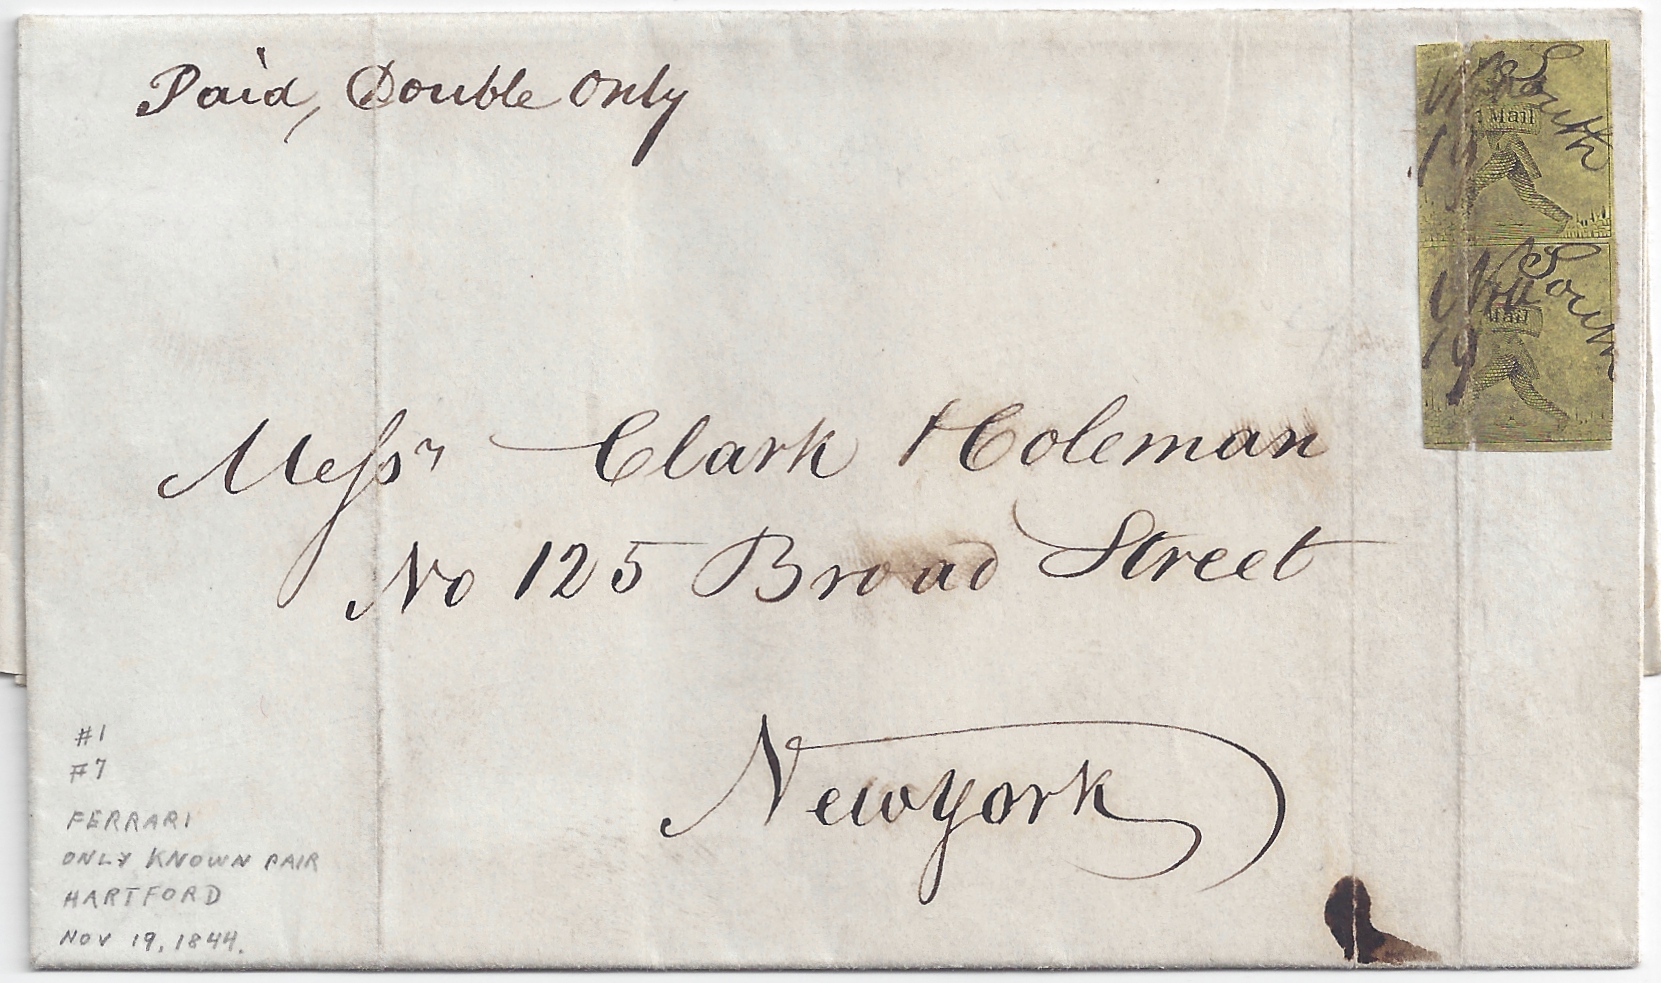 Paid, Double Only
South
19
Mail
South
19
Mail
Messrs Clark & Coleman
No 125 Broad Street
New York
#1
#7
FERRARI
ONLY KNOWN PAIR
HARTFORD
NOV 19, 1844.